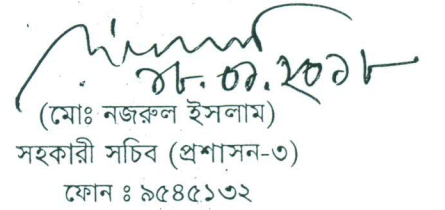 ১৮.০১.২০১৮
(মোঃ নজরুল ইসলাম)
সহকারী সচিব (প্রশাসন-৩)
ফোন ঃ ৯৫৪৫১৩২